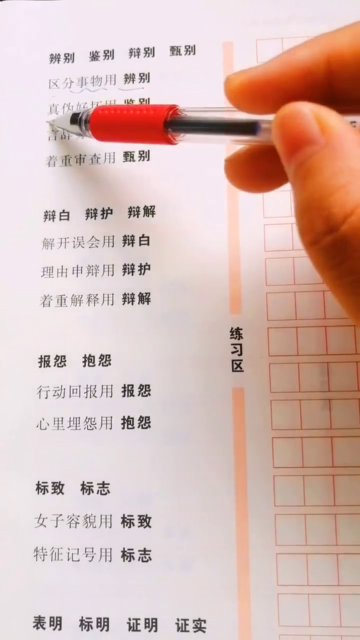 辨别 鉴别 辩别 甄别
区分事物用 辨别
真伪好坏用 鉴别
言辞
着重审查用 甄别
辩白 辩护 辩解
解开误会用 辩白
理由申辩用 辩护
着重解释用 辩解
报怨 抱怨
行动回报用 报怨
心里埋怨用 抱怨
标致 标志
女子容貌用 标致
特征记号用 标志
表明 标明 证明 证实
练习区